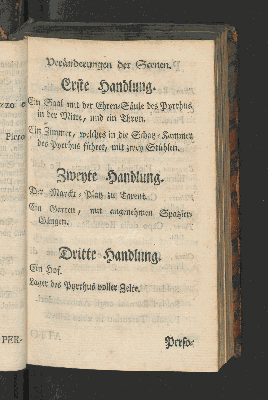 Veränderungen der Scenen.
Erste Handlung.
Ein Saal mit der Ehren-Säule des Pyrrhus,
in der Mitte, und ein Thron.
Ein Zimmer, welches in die Schatz-Kammer
des Pyrrhus führet, mit zwey Stühlen.
Zweyte Handlung.
Der Marckt-Platz zu Tarent.
Ein Garten, mit angenehmen Spatzier-
Gängen.
Dritte Handlung.
Ein Hof.
Lager des Pyrrhus voller Zelte.
Perso-
PER-